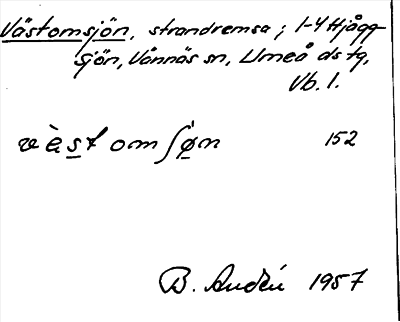 Västomsjön, strandremsa; 1-4 Hjågg-
sjön, Vännäs sn, Umeå ds tg,
Vb. l.
væ̀st om ʃø̀n 152
B. Audén 1957